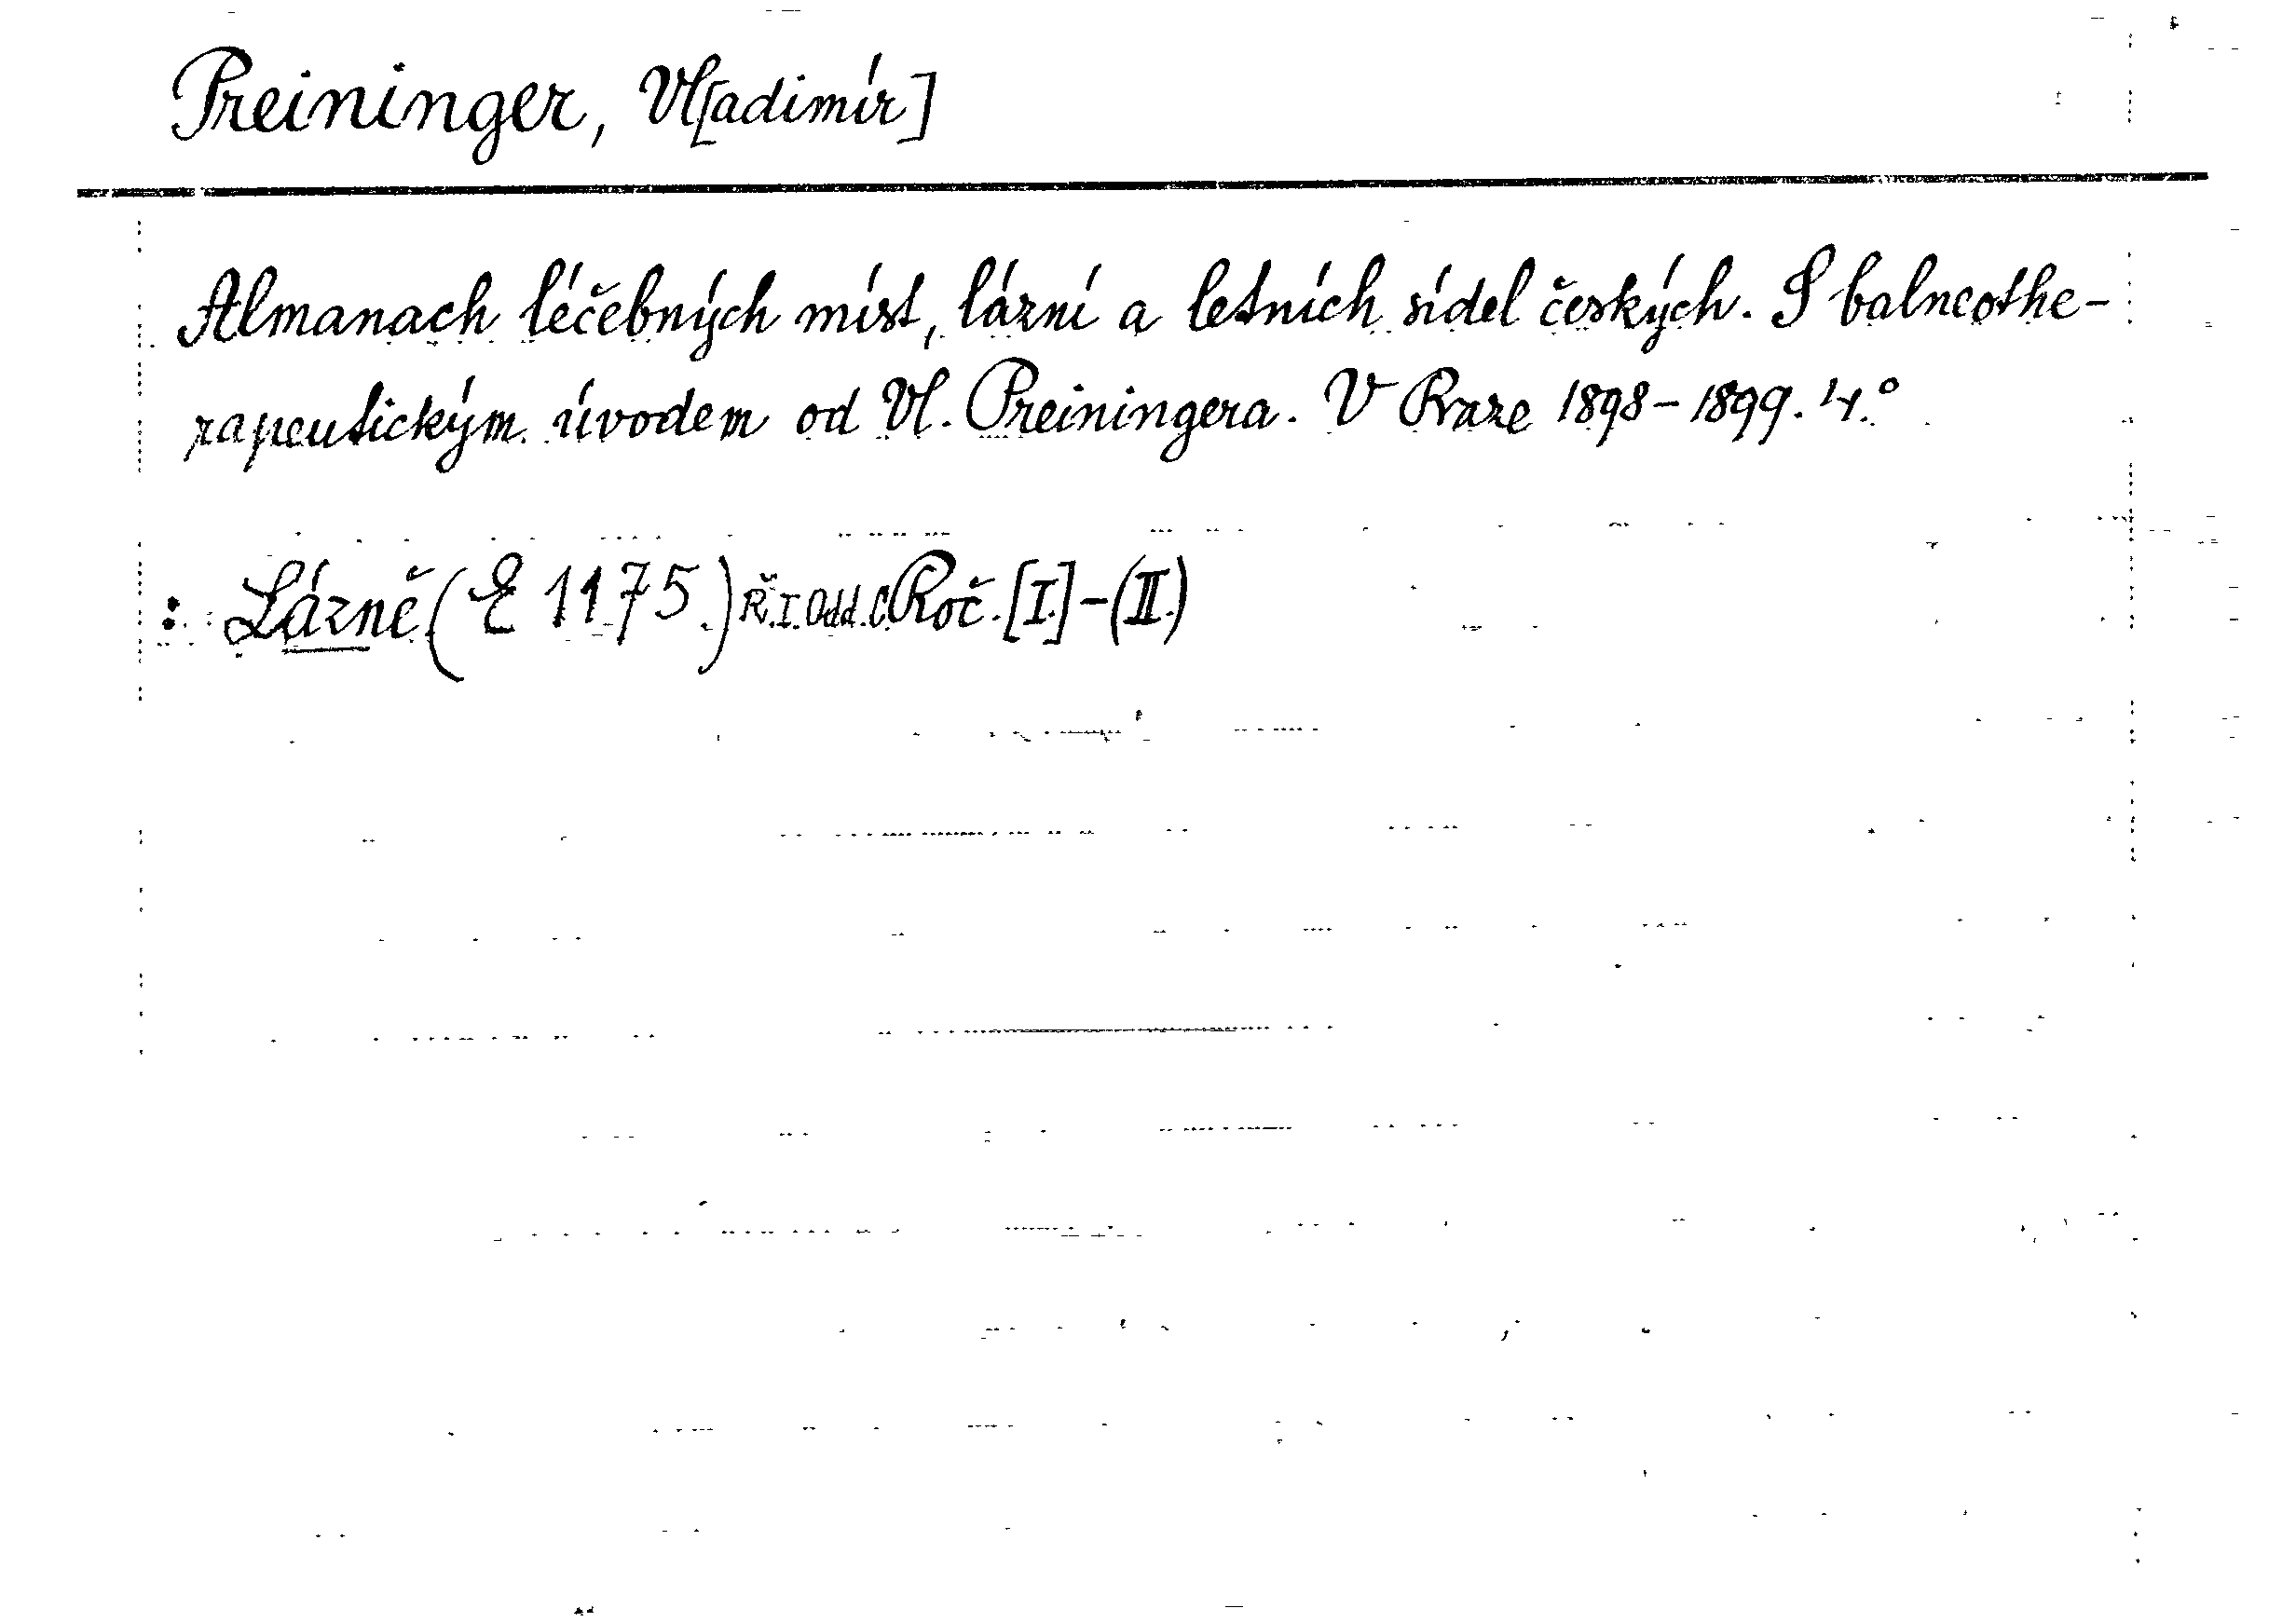 Preininger, Vl[adimír]
Almanach léčebných míst, lázní a letních sídel českých. S balneothe-
rapeutickým úvodem od Vl. Preiningera. V Praze 1898-1899. 4.°
: Lázně (E 1175.) Ř.I. Odd. C. Roč. [I.]-(II.)